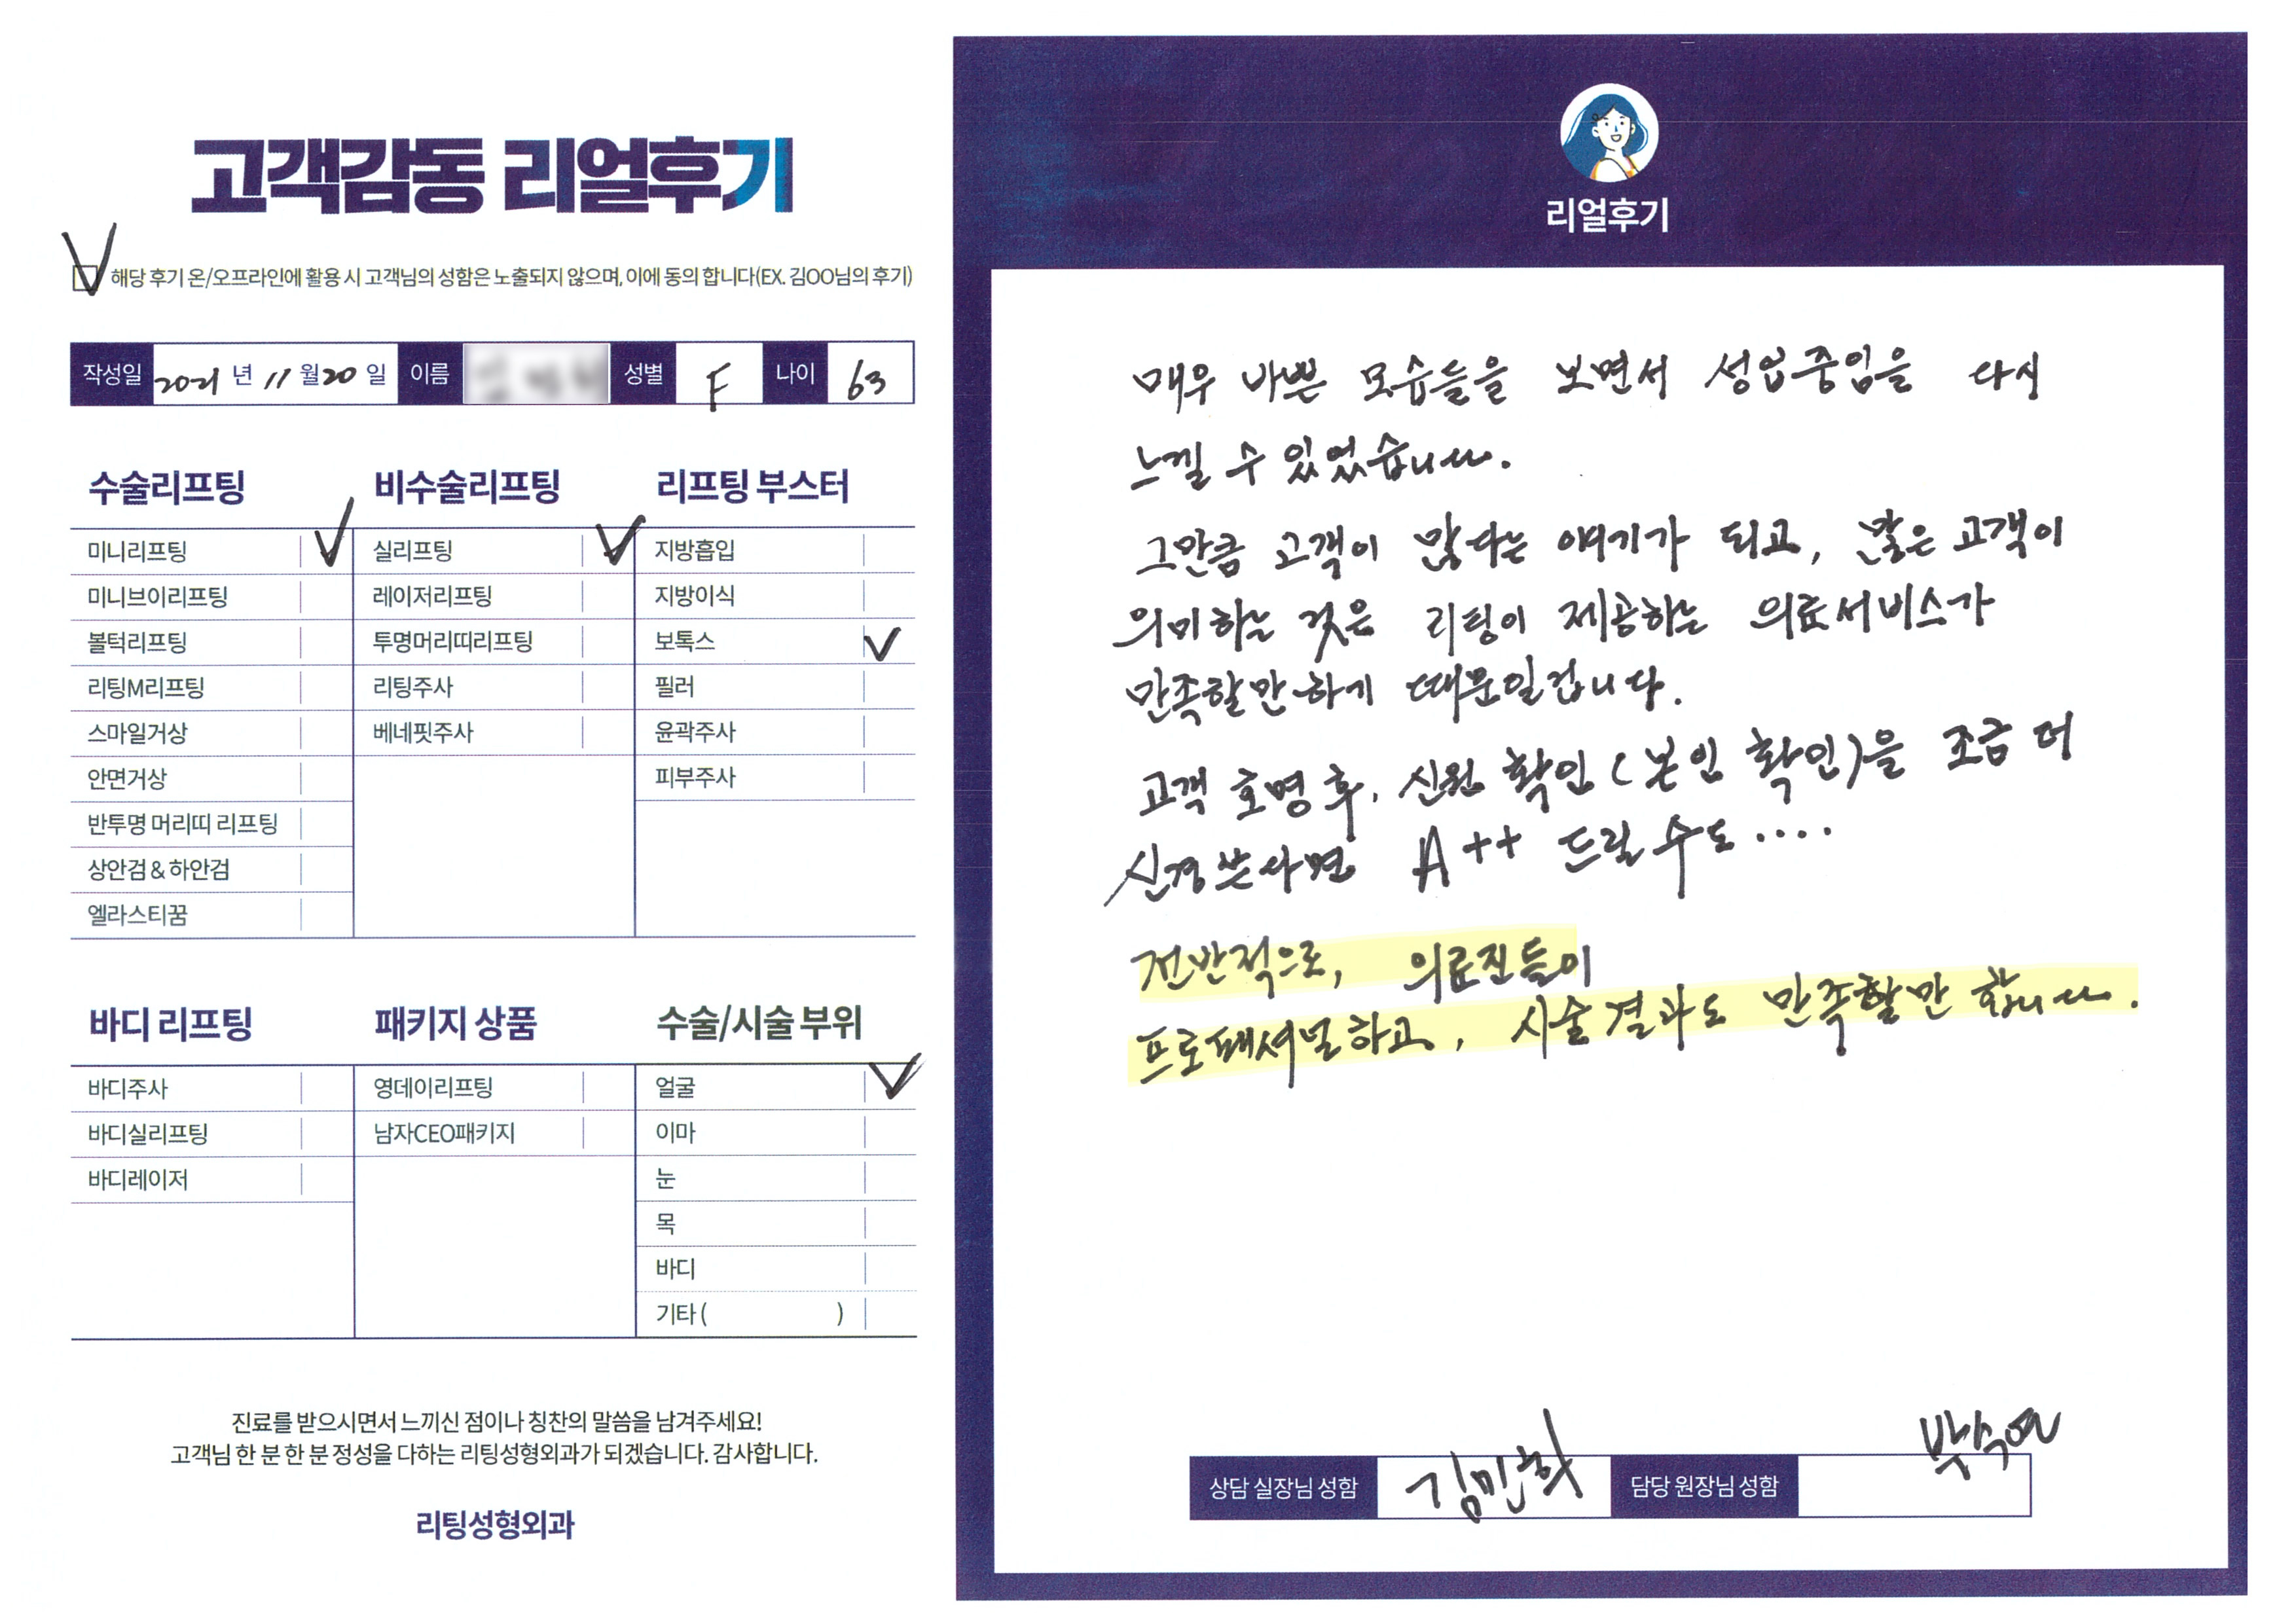 고객감동 리얼후기
해당 후기 온/오프라인에 활용 시 고객님의 성함은 노출되지 않으며, 이에 동의 합니다(EX. 김OO님의 후기)
작성일 2021 년 11 월 20 일 이름 성별 F 나이 63
수술리프팅
미니리프팅
미니브이리프팅
볼턱리프팅
리팅M리프팅
스마일거상
안면거상
반투명 머리띠 리프팅
상안검 & 하안검
엘라스티꿈
비수술리프팅
실리프팅
레이저리프팅
투명머리띠리프팅
리팅주사
베네핏주사
리프팅 부스터
지방흡입
지방이식
보톡스
필러
윤곽주사
피부주사
바디 리프팅
바디주사
바디실리프팅
바디레이저
패키지 상품
영데이리프팅
남자CEO패키지
수술/시술 부위
얼굴
이마
눈
목
바디
기타 ( )
진료를 받으시면서 느끼신 점이나 칭찬의 말씀을 남겨주세요!
고객님 한 분 한 분 정성을 다하는 리팅성형외과가 되겠습니다. 감사합니다.
리팅성형외과
리얼후기
매우 바쁜 모습들을 보면서 성업중임을 다시
느낄 수 있었습니다.
그만큼 고객이 많다는 얘기가 되고, 많은 고객이
의미하는 것은 리팅이 제공하는 의료서비스가
만족할만하기 때문일겁니다.
고객 호명 후, 신원 확인 (본인 확인)을 조금 더
신경쓴다면 A++ 드릴 수도....
전반적으로, 의료진들이
프로페셔널하고, 시술결과도 만족할만 합니다.
상담 실장님 성함 김민희 담당 원장님 성함